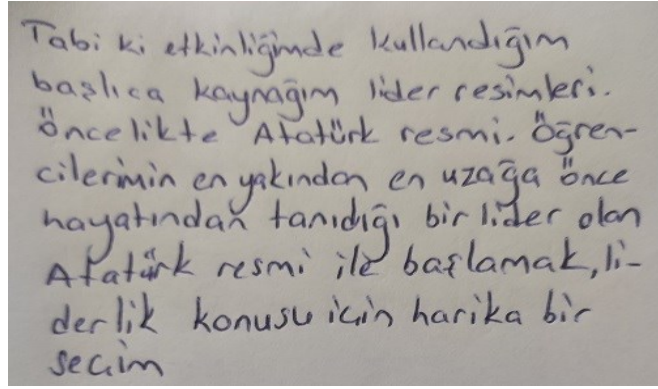 Tabi ki etkinliğimde kullandığım
başlıca kaynağım lider resimleri.
Öncelikte Atatürk resmi. Öğren-
cilerimin en yakından en uzağa önce
hayatından tanıdığı bir lider olan
Atatürk resmi ile başlamak, li-
derlik konusu için harika bir
seçim